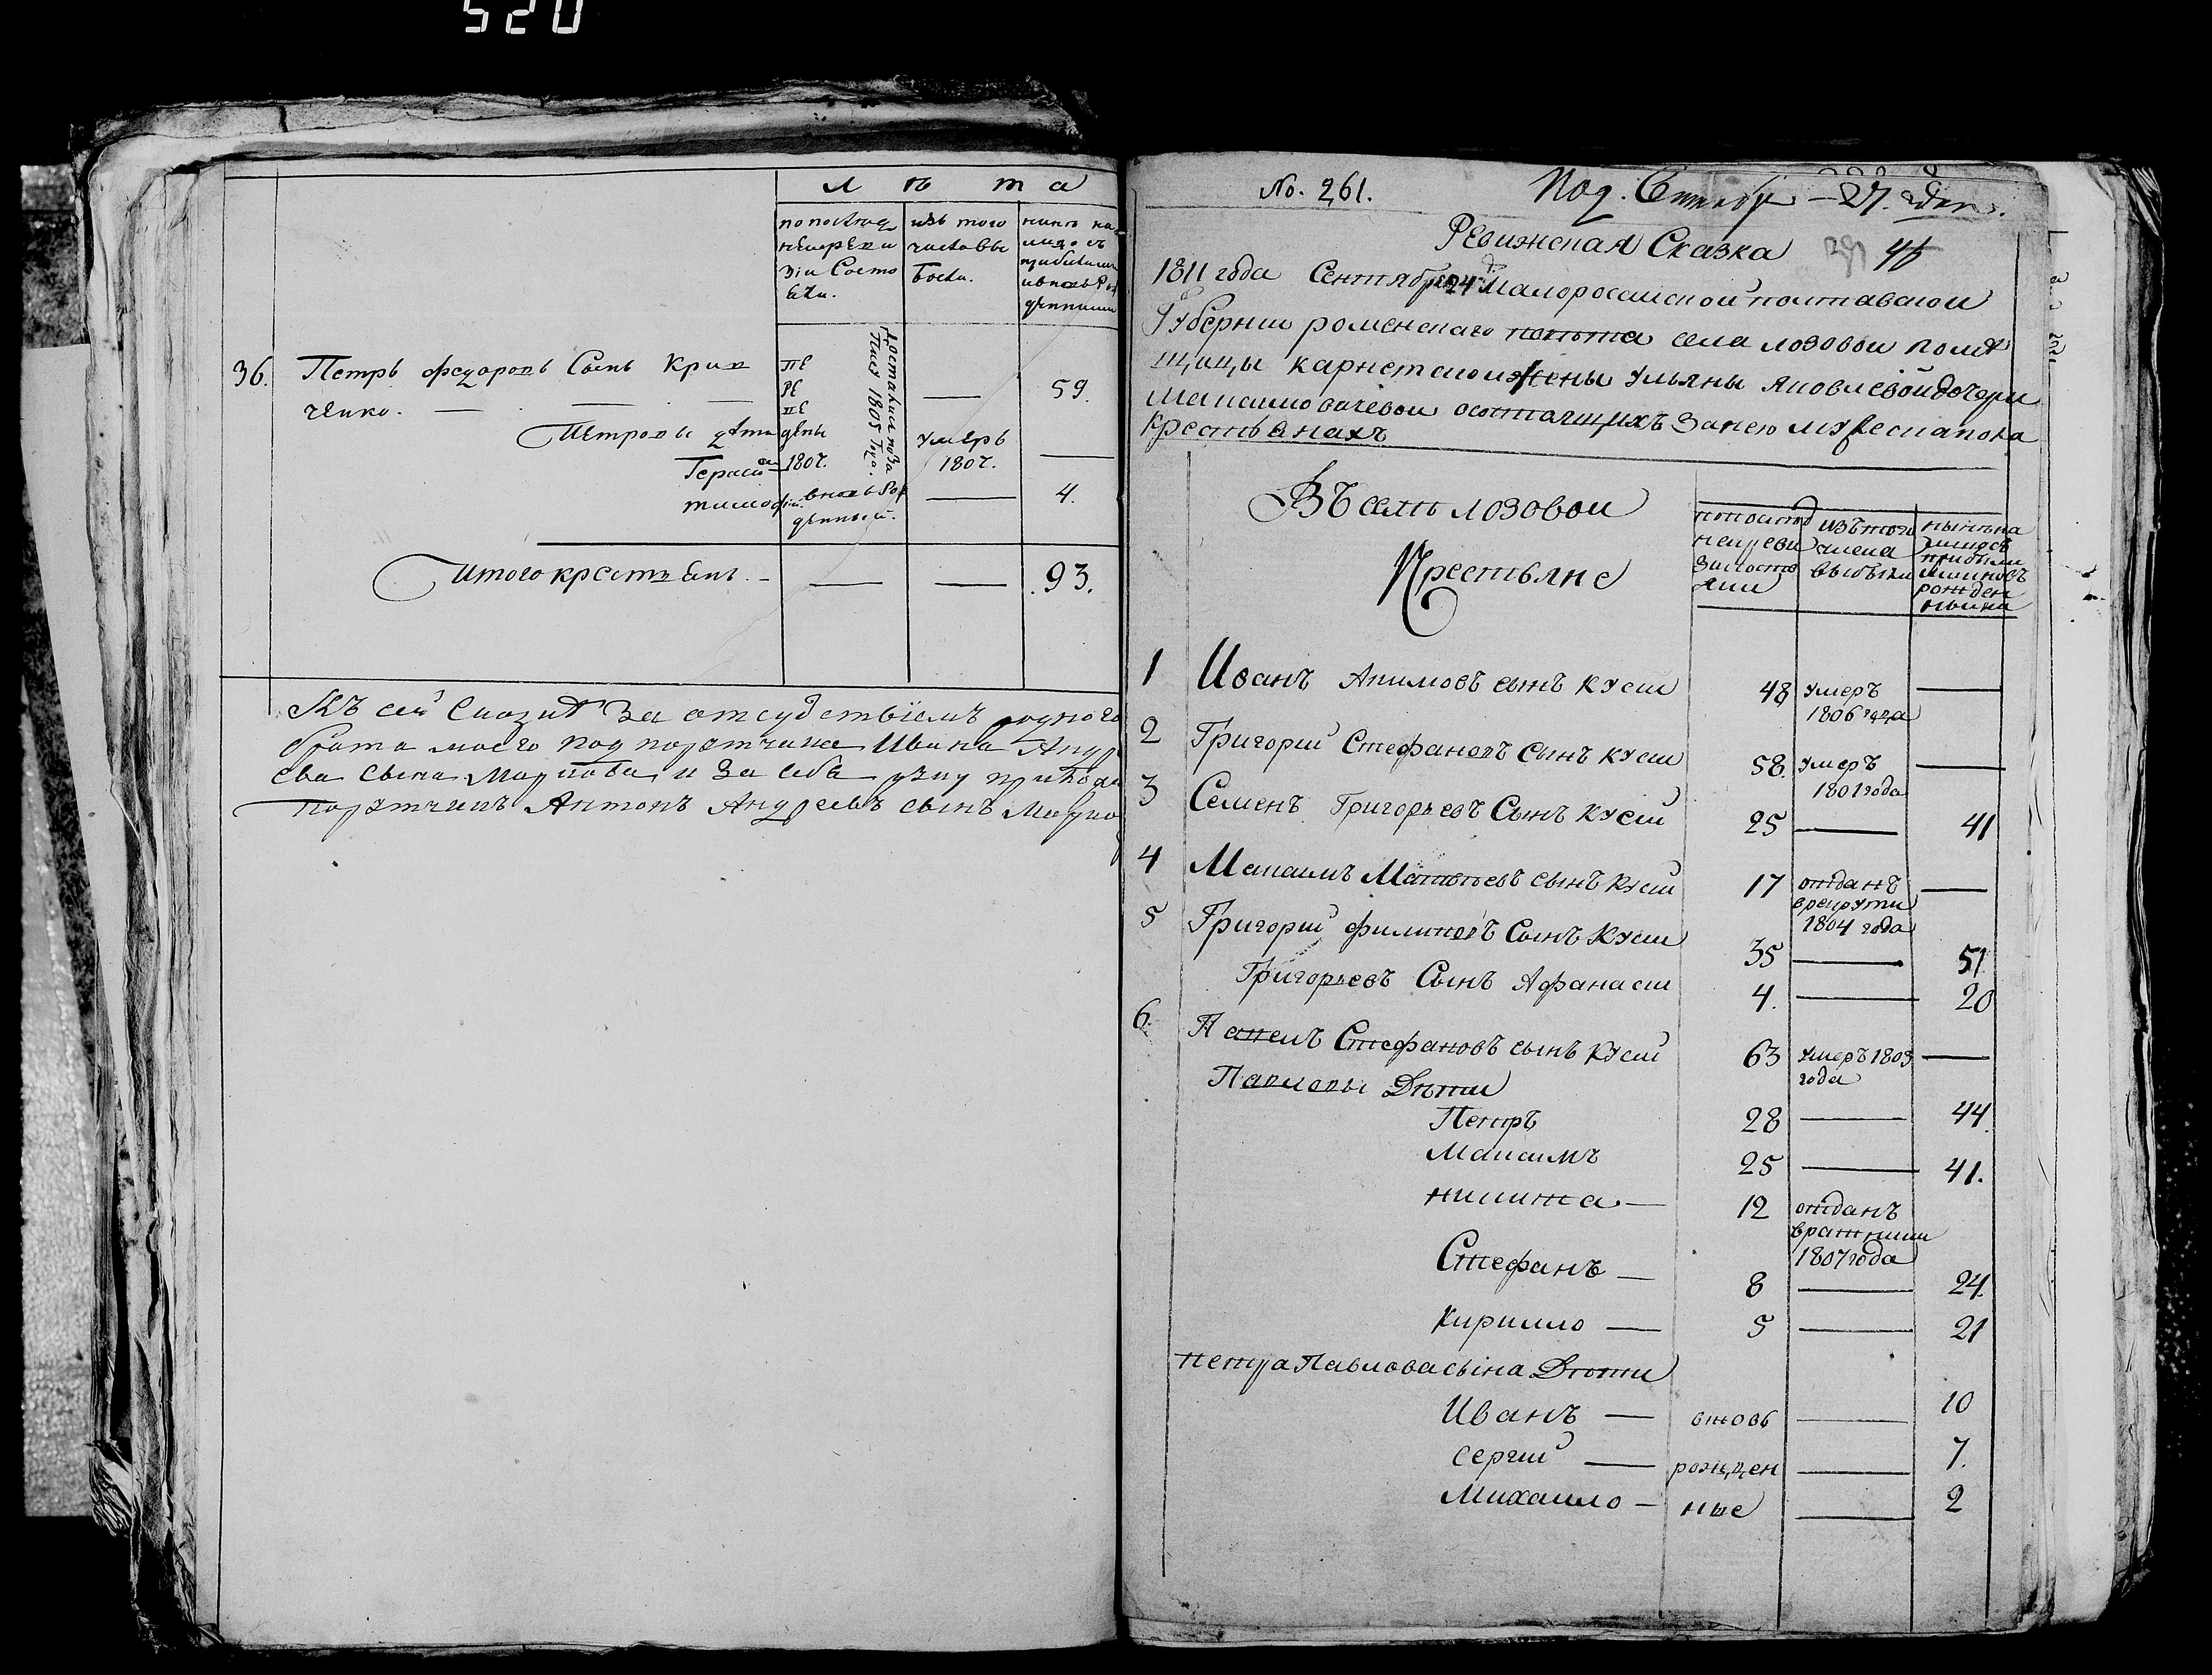 520
Л ѣ т а
по послѣд
ней ревизіи Состо
яли.
изъ того
числа Вы
были.
нынѣ на
лицо съ
прибылыми
и вновь Рож
денными
36. Петръ Федоровъ Сынъ Крив
ченко. — — —
59.
Достались после 1805 Года.
Петровы дѣти
Герасим 1807. умеръ 1807. —
Тимофей вновь Рож
денный. — 4.
Итого крестьянъ. — — — 93.
Къ сей Сказкѣ За отсудствіемъ роднаго
брата моего подпорутчика Ивана Андре
ева Сына Маркова и За себя руку приложи
порутчикъ Антонъ Андреевъ сынъ Марко
No. 261. Под. Сентябр — 27. дня.
Ревижская Сказка
1811 года Сентября 24 Малоросийской полтавской
Губернии роменскаго повѣта села лозовой помѣ
щицы карнетской жены Ульяны яковлевой дочери
Максимовичевой осостоящихъ Занею мужескапола
крестьянахъ
Въ селѣ лозовой
Крестьяне
по послѣд
ней реви
зіи состо
яли
изъ того
числа
выбыли
нынѣ на
лицо съ
прибыли
ми и новъ
рожден
ными
1 Иванъ Акимовъ сынъ кусій 48 умеръ —
1806 года
2 Григорий Стефановъ Сынъ кусій 58. умеръ —
1801 года
3 Семенъ Григорьевъ Сынъ кусій 25 — 41
4 Максимъ Матвѣевъ сынъ кусій 17 отданъ —
врекруты
1804 года
5 Григорий Филиповъ Сынъ Кусій 35 — 51
Григорьевъ Сынъ Афанасій 4. — 20
6. Павелъ Стефановъ сынъ кусій 63 умеръ 1803 —
года
Павловы Дѣти
Петръ 28 — 44
Максимъ 25 — 41.
никита — 12 отданъ
вратники
1807 года
Стефанъ — 8 — 24.
Кирилло — 5 — 21
петра Павлова сына Дѣти
Иванъ — вновь — 10
Сергий — рожден — 7.
Михаило — ные — 2